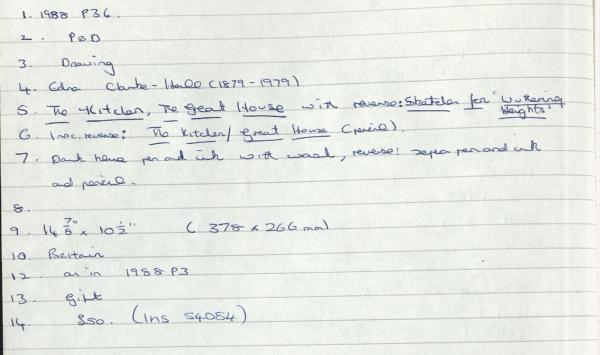 1. 1988 P36.
2. P&D
3. Drawing
4. Edna Clarke-Hall (1879-1979)
5. The Kitchen, The Great House with reverse: Sketches for 'Wuthering Heights'
6. Insc. reverse: The Kitchen/ Great House (pencil).
7. Dark brown pen and ink with wash, reverse: sepia pen and ink
and pencil.
8.
9. 14 7/8" x 10 1/2" (378 x 266 mm)
10. Britain
12. as in 1988 P3
13. gift
14. £50. (Ins 54084)